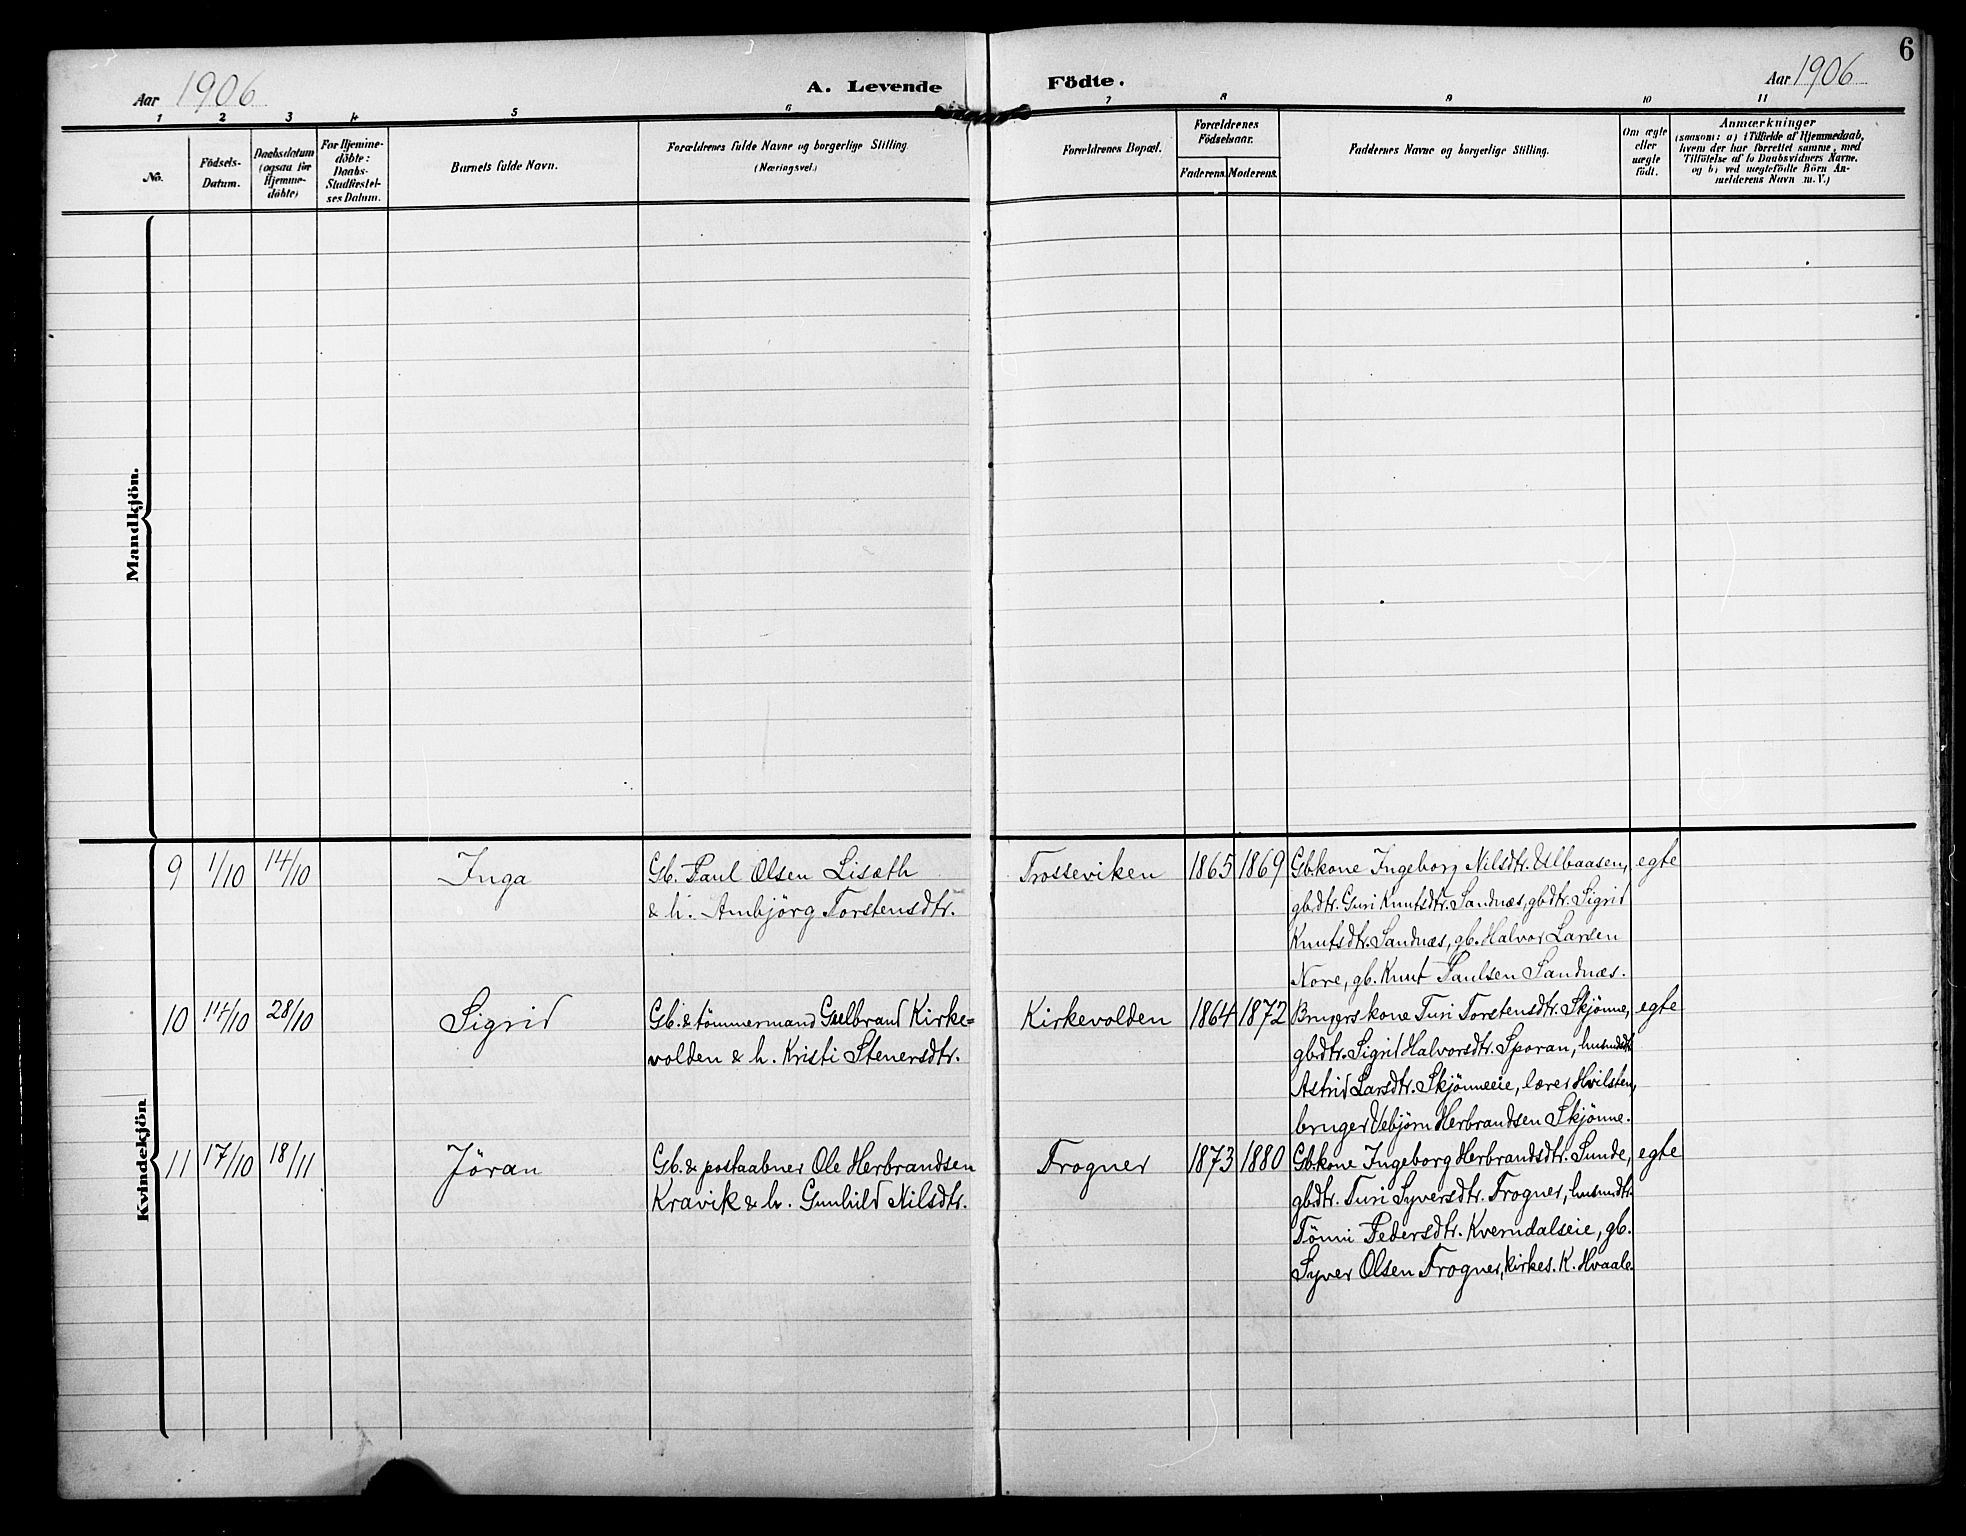 6
Aar 1906
A. Levende
Födte.
Aar 1906
1 2 3 4 5 6 7 8 9 10 11
No.
Födsels-
Datum.
Daabsdatum
(ogsaa for
Hjemme-
döbte)
For Hjemme-
döbte:
Daabs-
Stadfæstel-
ses Datum.
Barnets fulde Navn.
Forældrenes fulde Navne og borgerlige Stilling
(Næringsvei.)
Forældrenes Bopæl.
Forældrenes
Födselsaar.
Faderens. Moderens.
Faddernes Navne og borgerlige Stilling.
Om ægte
eller
uægte
födt.
Anmærkninger
(saasom: a) i Tilfælde af Hjemmedaab,
hvem der har forrettet samme, med
Tilföielse af to Daabsvidners Navne.
og b) ved uægtefödte Börn An-
melderens Navn m. V.)
Mandkjön.
Kvindekjön
9 1/10 14/10 Inga Gb. Paul Olsen Lisæth Trosseviken 1865 1869 Gbkone Ingeborg Nilsdtr. Ulbaasen, egte
& h. Ambjörg Torstensdtr. gbdtr. Guri Knutsdtr. Sandnæs, gbdtr. Sigrid
Knutsdtr. Sandnæs, gb. Halvor Larsen
Nore, gb. Knut Paulsen Sandnæs.
10 14/10 28/10 Sigrid Gb. & tömmermand Gulbrand Kirke= Kirkevolden 1864 1872 Brugerskone Turi Torstensdtr. Skjönne, egte
volden & h. Kristi Stenersdtr. gbdtr. Sigrid Halvorsdtr. Sporan, husmdtr.
Astrid Larsdtr. Skjönneeie, lærer Hvilsten,
bruger Vebjørn Herbrandsen Skjönne.
11 17/10 18/11 Jöran Gb. & postaabner Ole Herbrandsen Frogner 1873 1880 Gbkone Ingeborg Herbrandsdtr. Sunde, egte
Kravik & h. Gunhild Nilsdtr. gbdtr. Turi Syversdtr. Frogner, husmdtr.
Tönni Pedersdtr. Kverndalseie, gb.
Syver Olsen Frogner, kirkes. K. Hvaale.